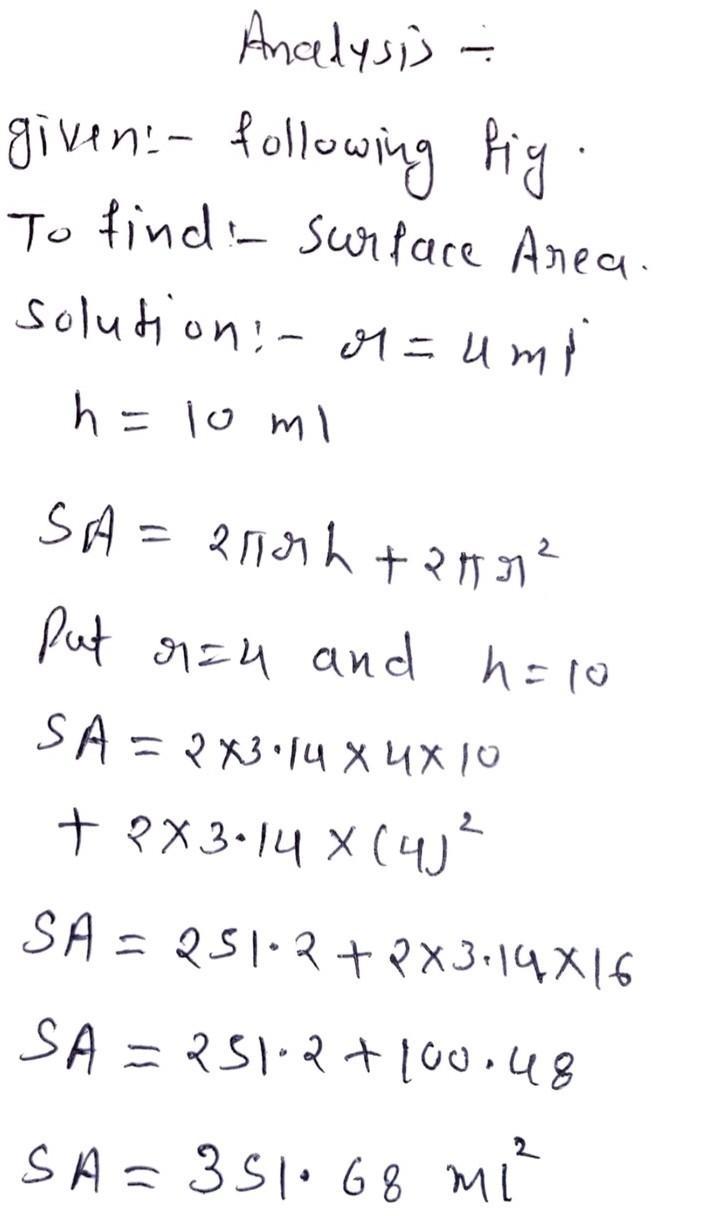 Analysis :-
given:- following fig.
To find:- Surface Area.
Solution:- r = 4 mi
h = 10 mi
SA = 2πrh + 2πr²
Put r=4 and h=10
SA = 2×3.14×4×10
+ 2×3.14×(4)²
SA = 251.2 + 2×3.14×16
SA = 251.2 + 100.48
SA = 351.68 mi²